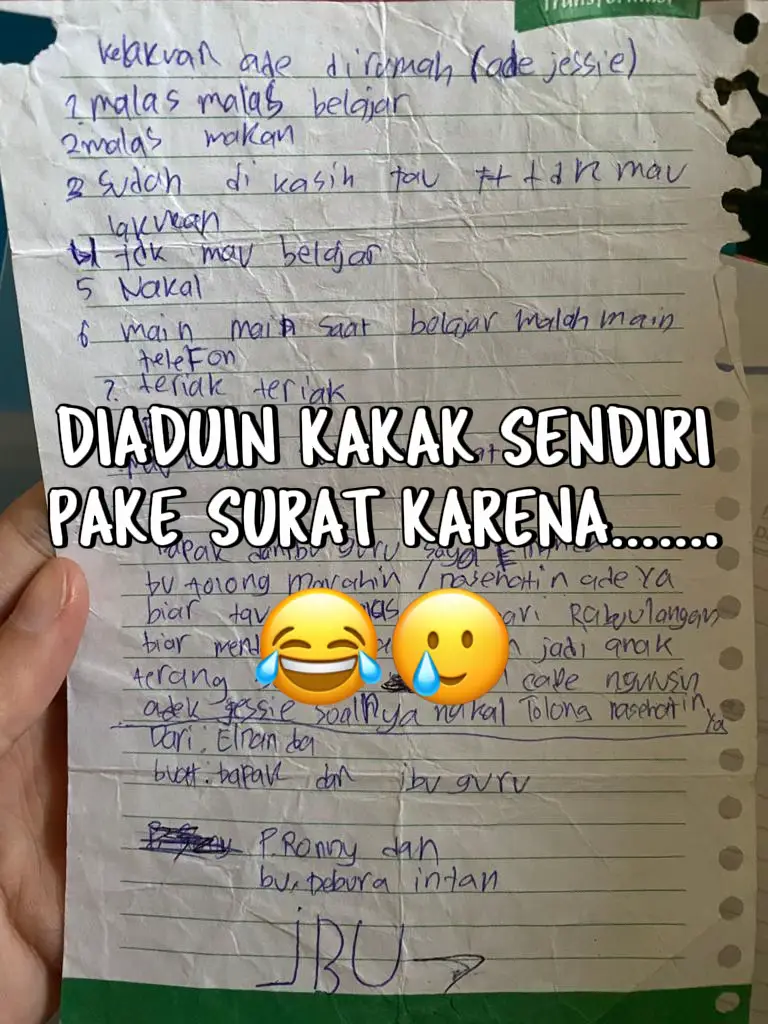 kelakuan ade dirumah (ade jessie)
1. malas malas belajar
2. malas makan
3 Sudah di kasih tau tdk mau
lakukan
4 tdk mau belajar
5 Nakal
6 main main saat belajar malah main
telefon
7. teriak teriak
DIADUIN KAKAK SENDIRI
PAKE SURAT KARENA.......
bu tolong marahin / nasehatin ade ya
biar tau ari Rabu ulangan
biar jadi anak
terang cape ngurusin
adek jessie soalnya nakal Tolong nasehatin
ya
Dari: Elnan da
buat: bapak dan ibu guru
P. Ronny dan
bu, Debora intan
JBU